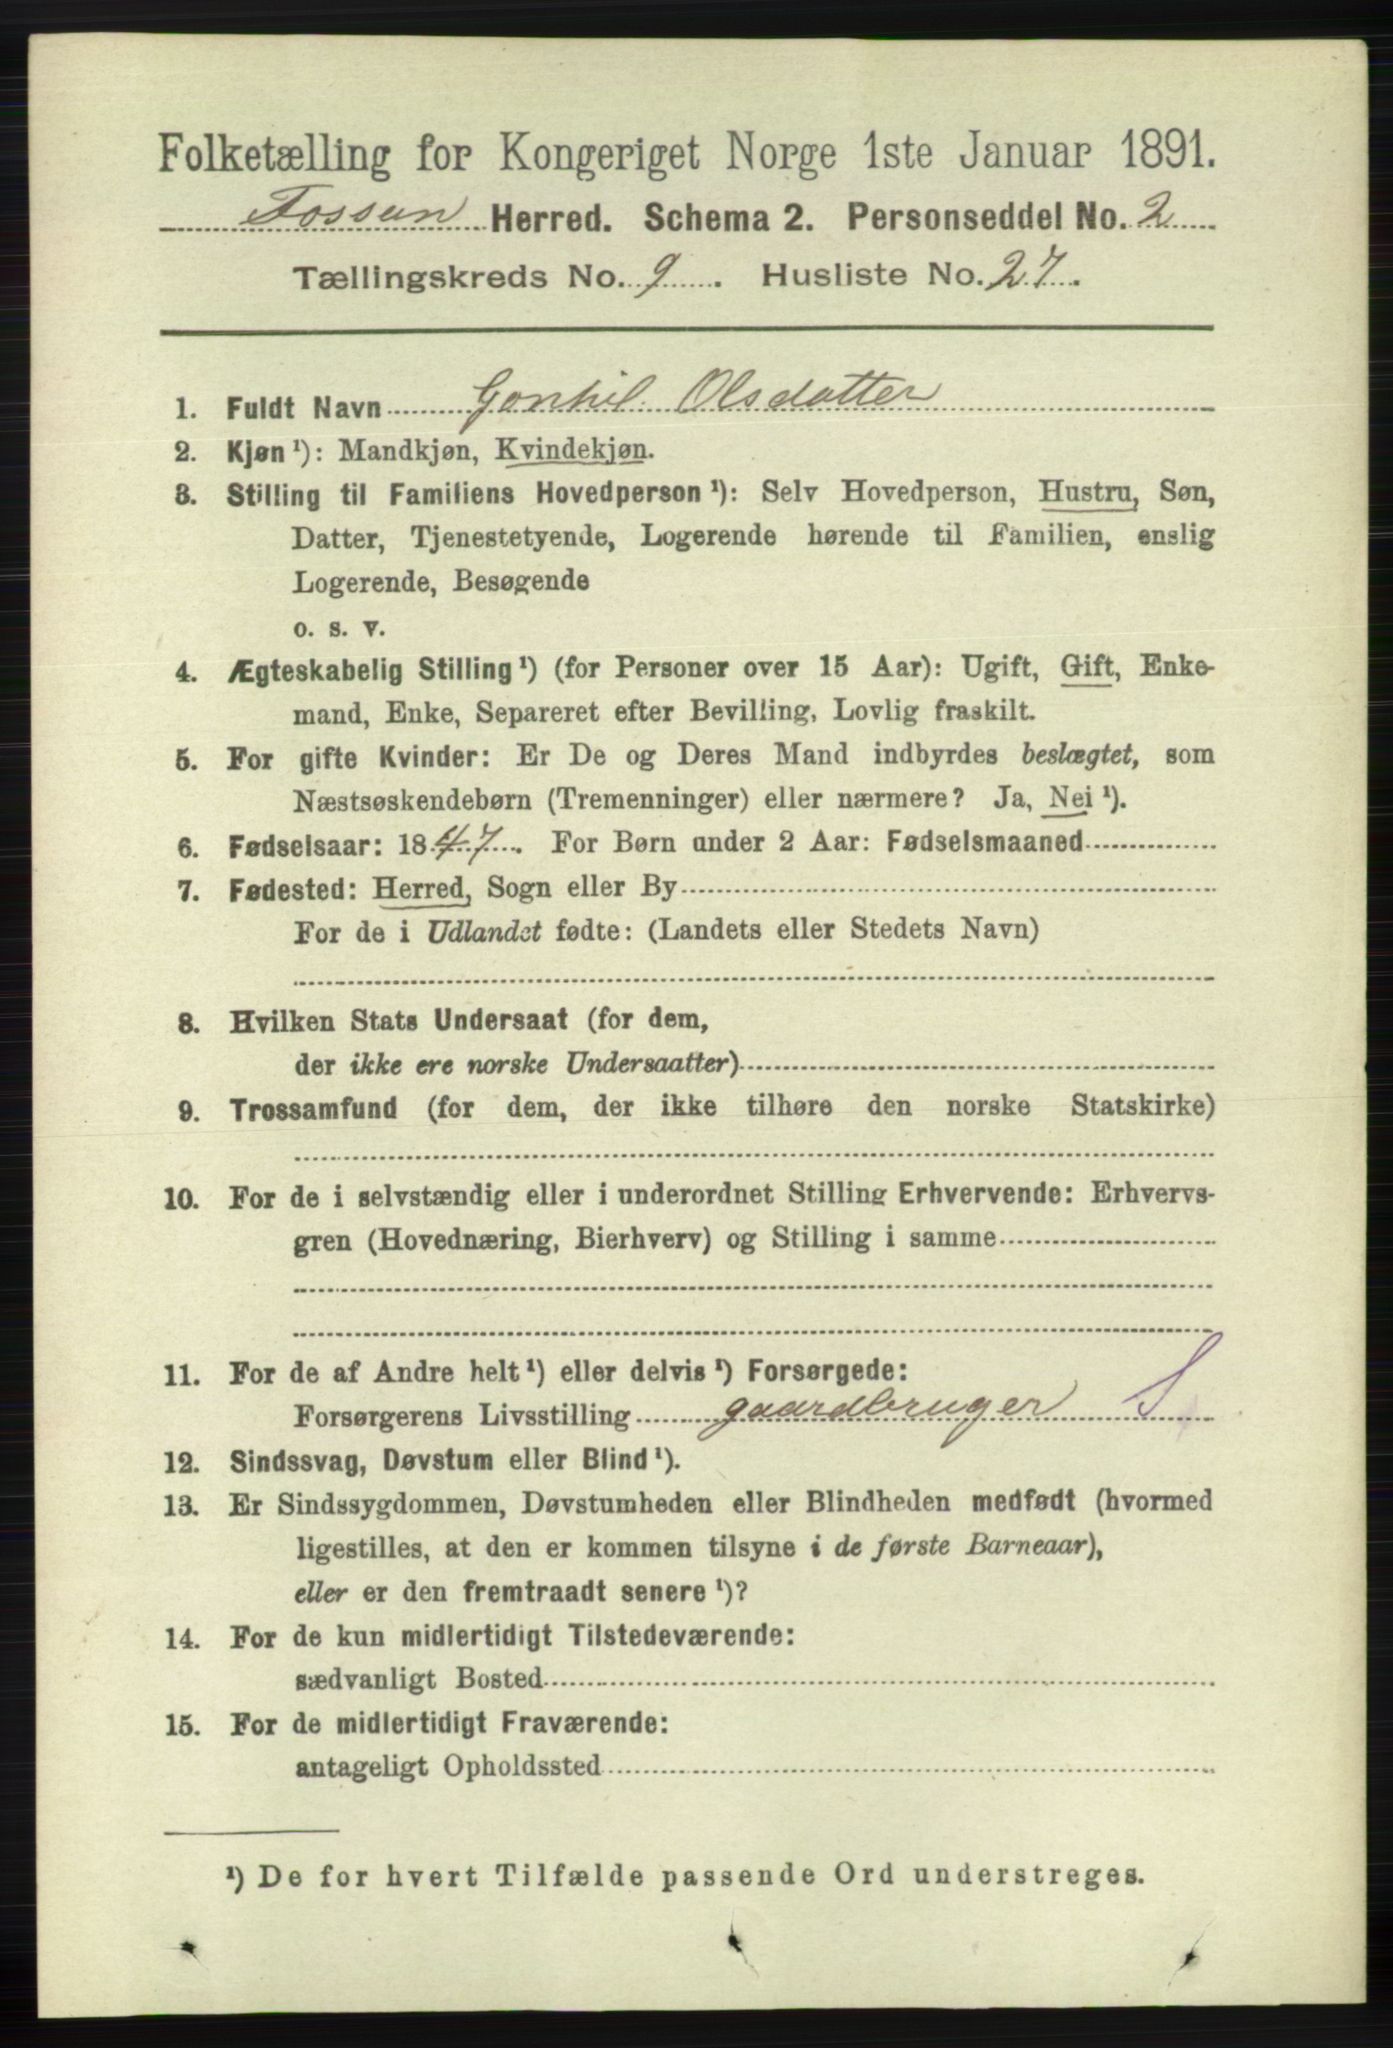 Folketælling for Kongeriget Norge 1ste Januar 1891.
Fossan Herred. Schema 2. Personseddel No. 2
Tællingskreds No. 9. Husliste No. 27.
1. Fuldt Navn Gonhil Olsdatter
2. Kjøn ¹): Mandkjøn, Kvindekjøn.
3. Stilling til Familiens Hovedperson ¹): Selv Hovedperson, Hustru, Søn,
Datter, Tjenestetyende, Logerende hørende til Familien, enslig
Logerende, Besøgende
o. s. v.
4. Ægteskabelig Stilling ¹) (for Personer over 15 Aar): Ugift, Gift, Enke-
mand, Enke, Separeret efter Bevilling, Lovlig fraskilt.
5. For gifte Kvinder: Er De og Deres Mand indbyrdes beslægtet, som
Næstsøskendebørn (Tremenninger) eller nærmere? Ja, Nei ¹).
6. Fødselsaar: 1847. For Børn under 2 Aar: Fødselsmaaned
7. Fødested: Herred, Sogn eller By
For de i Udlandet fødte: (Landets eller Stedets Navn)
8. Hvilken Stats Undersaat (for dem,
der ikke ere norske Undersaatter)
9. Trossamfund (for dem, der ikke tilhøre den norske Statskirke)
10. For de i selvstændig eller i underordnet Stilling Erhvervende: Erhvervs-
gren (Hovednæring, Bierhverv) og Stilling i samme
11. For de af Andre helt ¹) eller delvis ¹) Forsørgede:
Forsørgerens Livsstilling gaardbruger S
12. Sindssvag, Døvstum eller Blind ¹).
13. Er Sindssygdommen, Døvstumheden eller Blindheden medfødt (hvormed
ligestilles, at den er kommen tilsyne i de første Barneaar),
eller er den fremtraadt senere ¹)?
14. For de kun midlertidigt Tilstedeværende:
sædvanligt Bosted
15. For de midlertidigt Fraværende:
antageligt Opholdssted
¹) De for hvert Tilfælde passende Ord understreges.